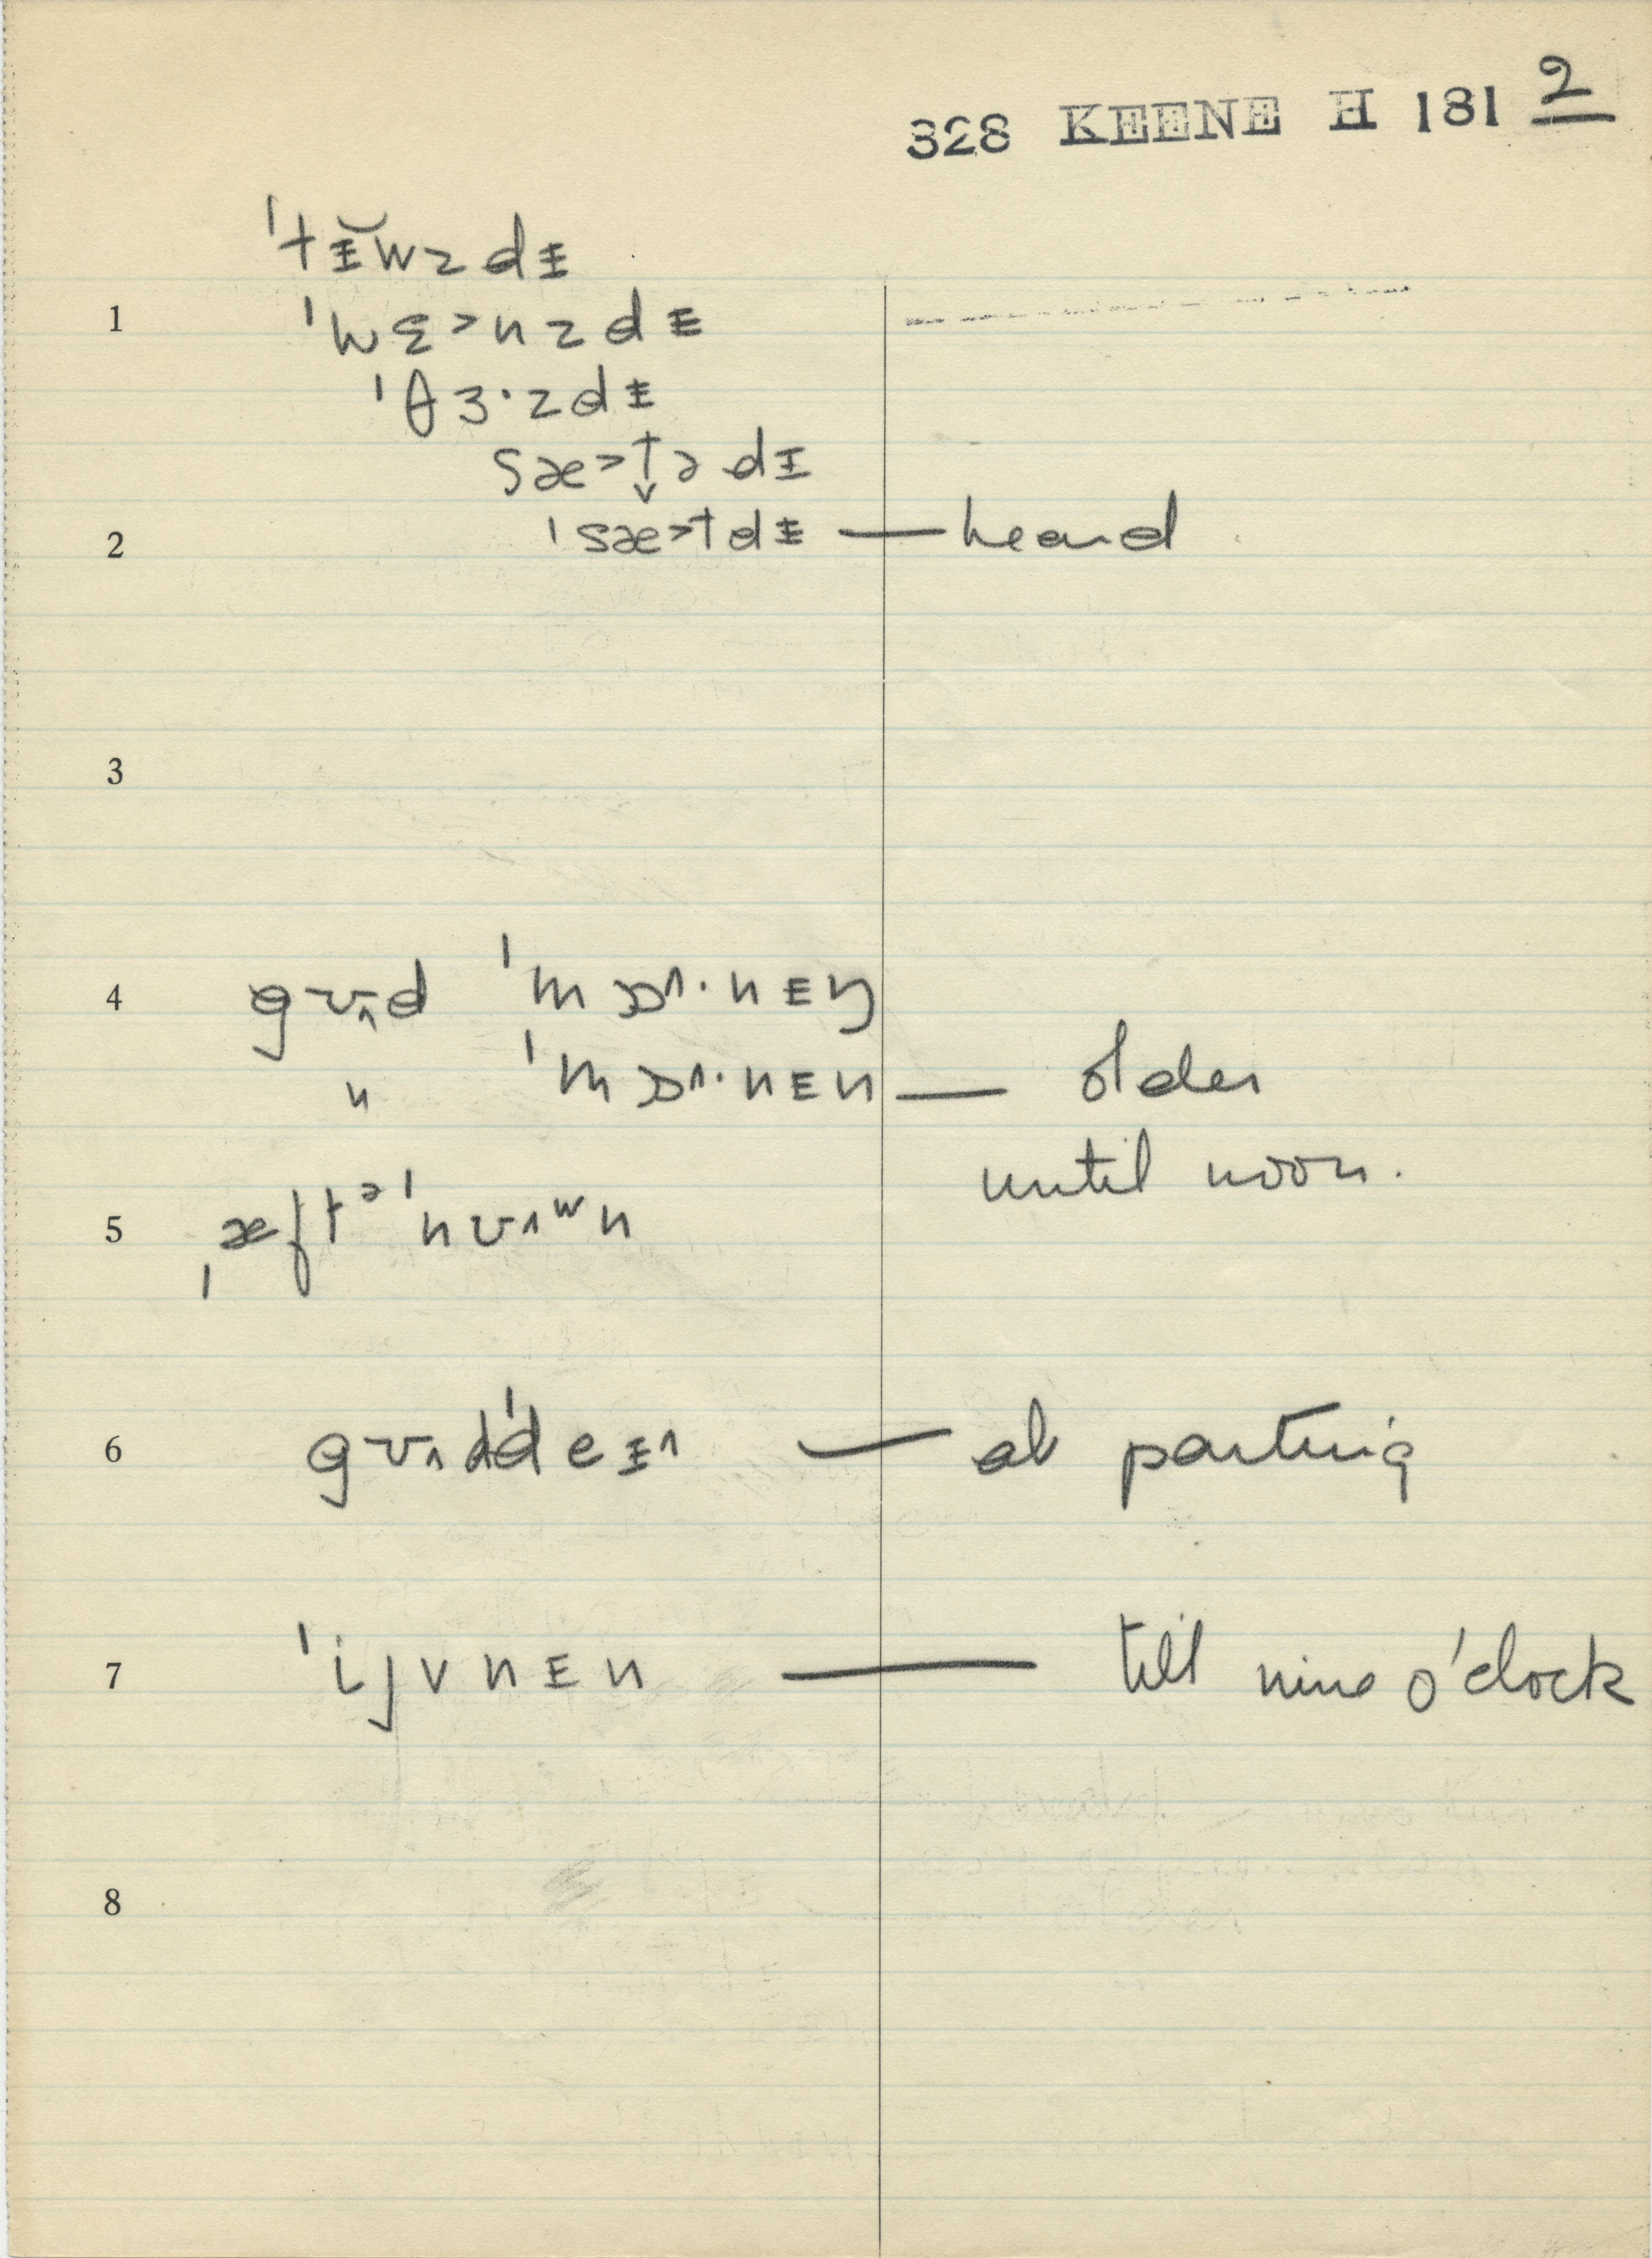 328 KEENE H 181 2
ˈtɪ̵̆wzdɪ̵
1 ˈwɛ>nzdɪ̵
ˈθɜ·zdɪ̵
sæ>t̬ədɪ̵
2 ˈsæ>tdɪ̵ — heard
3
4 gʊ˄d ˈmɒ˄·nɪ̵ŋ
" ˈmɒ˄·nɪ̵n — older
until noon.
5 ˌæftᵊˈnʊ˄ʷn
6 gʊ˄dˈdeɪ̵˄ — at parting
7 ˈijvnɪ̵n — till nine o'clock
8